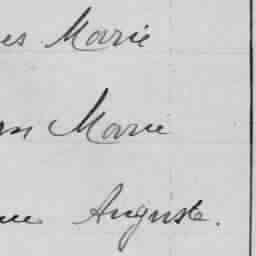 es Marie
Marie
Auguste.